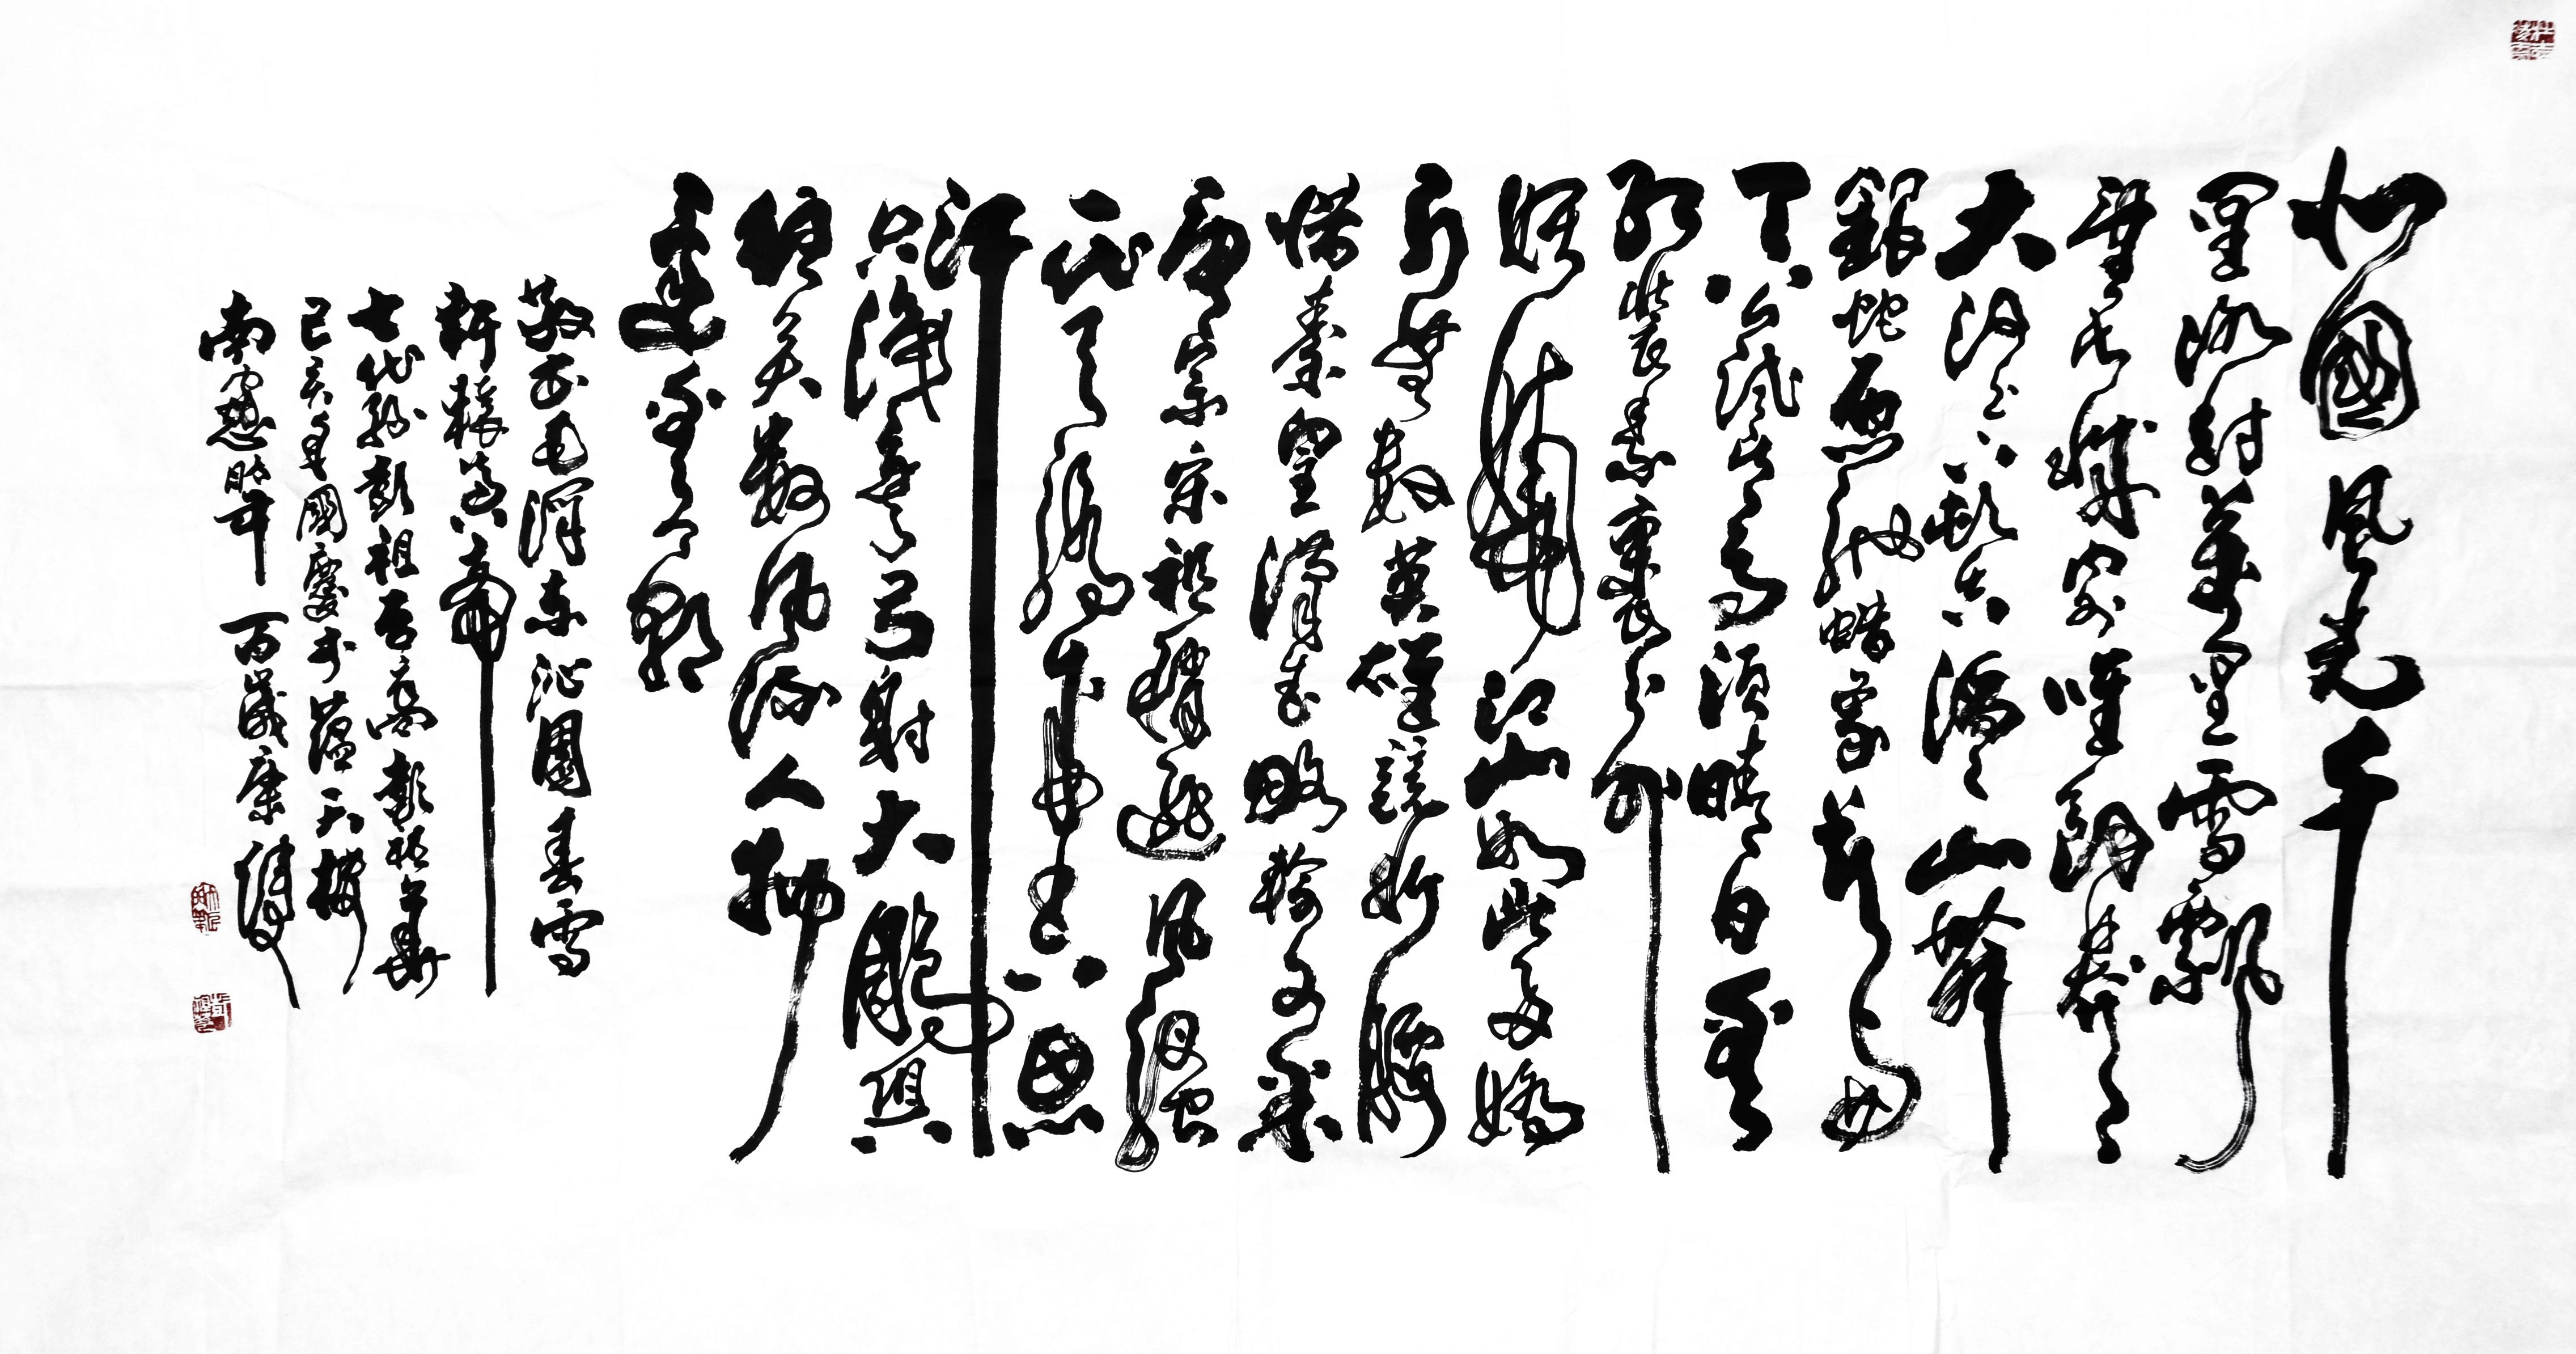 北國風光千
里冰封萬里雪飄
望長城内外唯餘莽莽
大河上下頓失滔滔山舞
銀蛇原馳蠟象欲與
天公試比高須晴日看
紅裝素裹分外
妖嬈江山如此多嬌
引無數英雄競折腰
惜秦皇漢武略輸文采
唐宗宋祖稍遜風騷
一代天驕成吉思
汗
只識彎弓射大雕俱
往矣數風流人物
還看今朝
敬書毛澤東沁園春雪
軒轅黃帝
七代孫彭祖裔彭祖
己亥年國慶於蘊天樓
南窗時年百歲康健